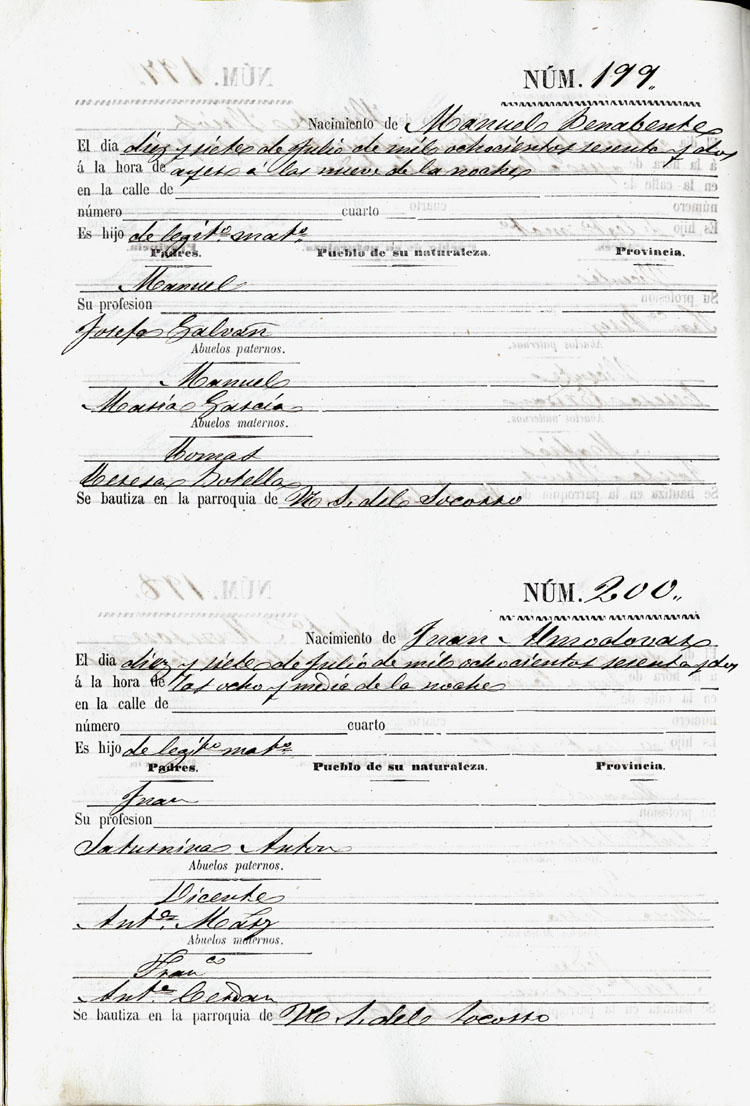 NÚM. 199.
Nacimiento de Manuel Benabente
El dia diez y siete de Julio de mil ochocientos sesenta y dos
á la hora de ayer á las nueve de la noche
en la calle de
número cuarto
Es hijo de legit.º mat.º
Padres. Pueblo de su naturaleza. Provincia.
Manuel
Su profesion
Josefa Galvañ
Abuelos paternos.
Manuel
Maria Garcia
Abuelos maternos.
Tomas
Teresa Botella
Se bautiza en la parroquia de N. S. del Socorro
NÚM. 200.
Nacimiento de Juan Almodovar
El dia diez y siete de Julio de mil ochocientos sesenta y dos
á la hora de las ocho y media de la noche
en la calle de
número cuarto
Es hijo de legit.º mat.º
Padres. Pueblo de su naturaleza. Provincia.
Juan
Su profesion
Saturnina Anton
Abuelos paternos.
Vicente
Ant.ª
Abuelos maternos.
Fran.co
Ant.ª Cerdan
Se bautiza en la parroquia de N. S. del Socorro